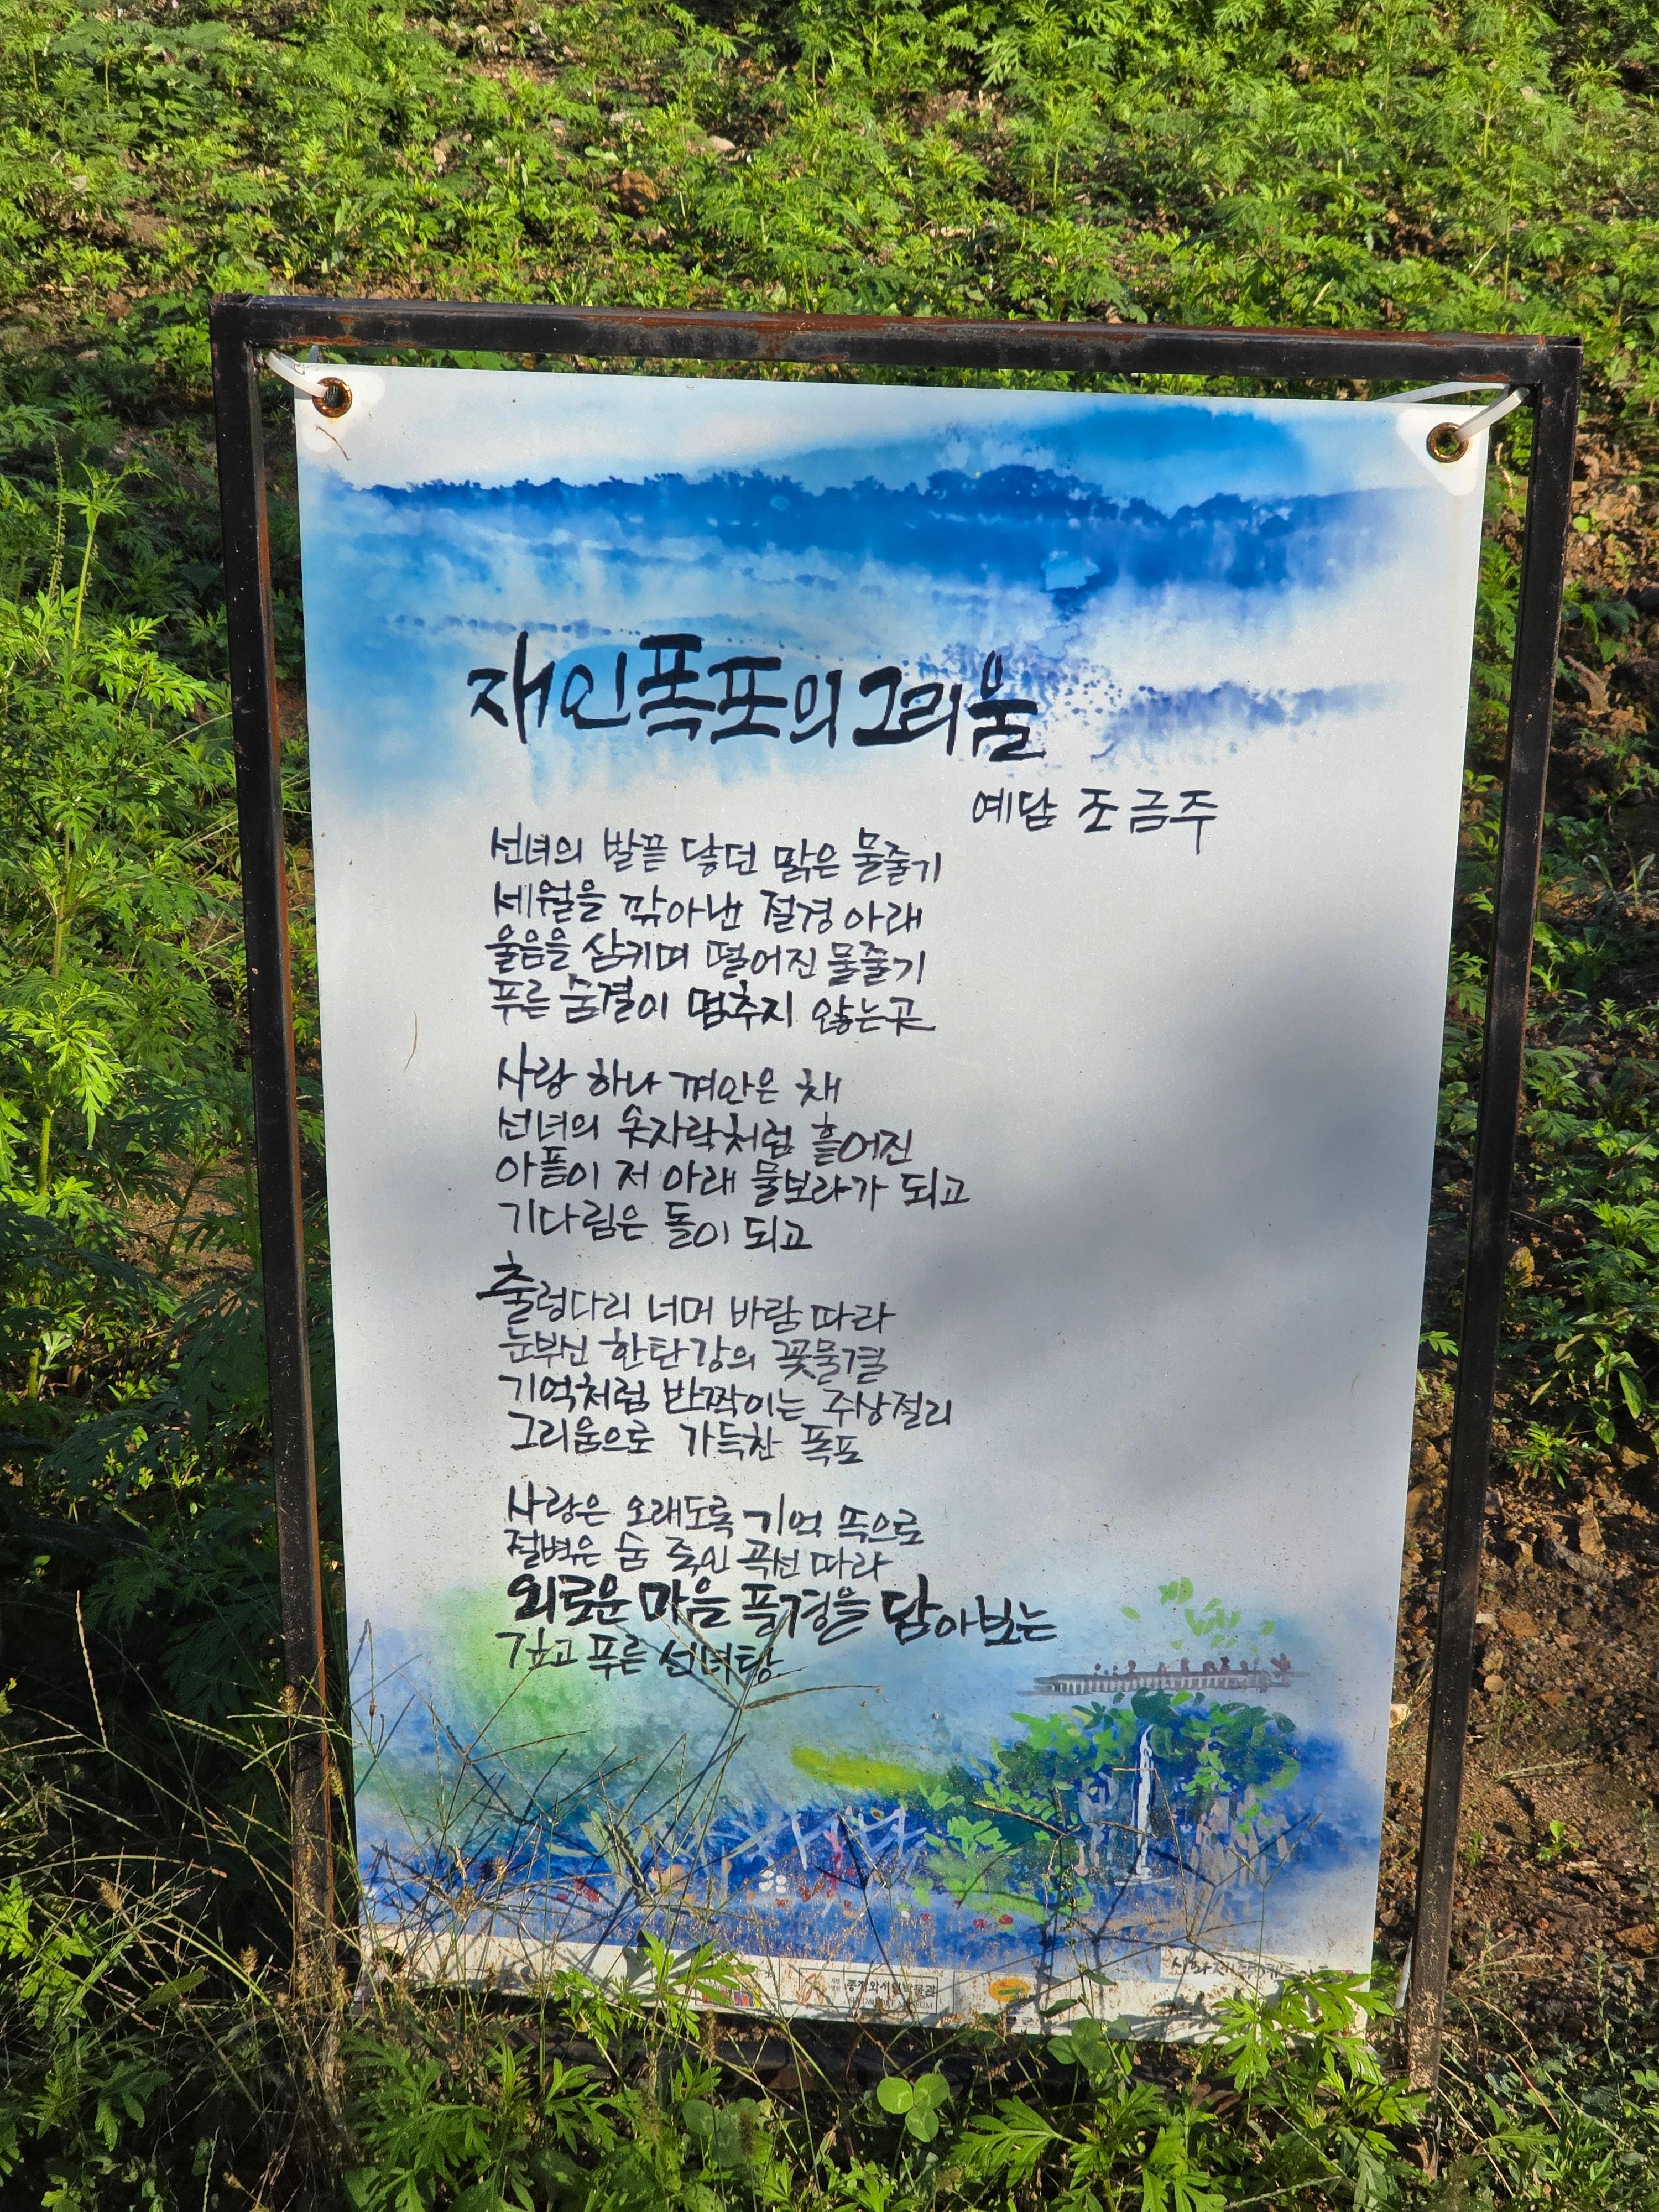 재인폭포의 그리움
예담 조금주
선녀의 발끝 닿던 맑은 물줄기
세월을 깎아낸 절경 아래
울음을 삼키며 떨어진 물줄기
푸른 숨결이 멈추지 않는 곳
사랑 하나 껴안은 채
선녀의 옷자락처럼 흩어진
아픔이 저 아래 물보라가 되고
기다림은 돌이 되고
출렁다리 너머 바람 따라
눈부신 한탄강의 꽃물결
기억처럼 반짝이는 주상절리
그리움으로 가득찬 폭포
사랑은 오래도록 기억 쪽으로
절벽은 숨 죽인 곡선 따라
외로운 마음 풍경을 담아보는
깊고 푸른 선녀탕
종자와시인박물관